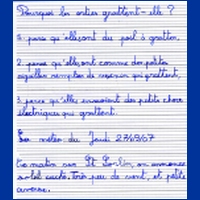 Pourquoi les orties grattent-elle ?
1. parce qu'elles ont du poil à gratter.
2. parce qu'elles ont comme des petites
aiguilles remplies de venin qui grattent.
3. parce qu'elles envoient des petits choses
électriques qui grattent.
La météo du Jeudi
Ce matin sur St Pol-Lim, on annonce
un peu de vent, et petite
averse.